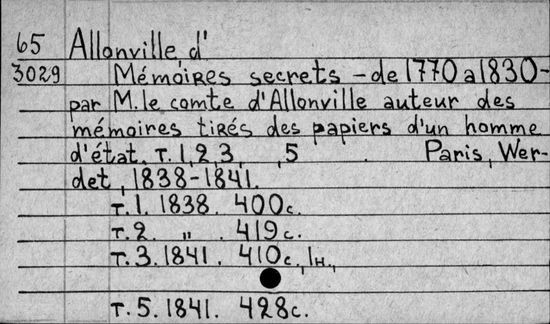 65 Allonville, d'
3029 Mémoires secrets - de 1770 a 1830 -
par M. le comte d'Allonville auteur des
mémoires tirés des papiers d'un homme
d'état. т. 1, 2, 3, , 5 . Paris, Wer-
det, 1838-1841.
т. 1. 1838. 400 с.
т. 2. " . 419 с.
т. 3. 1841. 410 с., 1н.,
т. 5. 1841. 428 с.